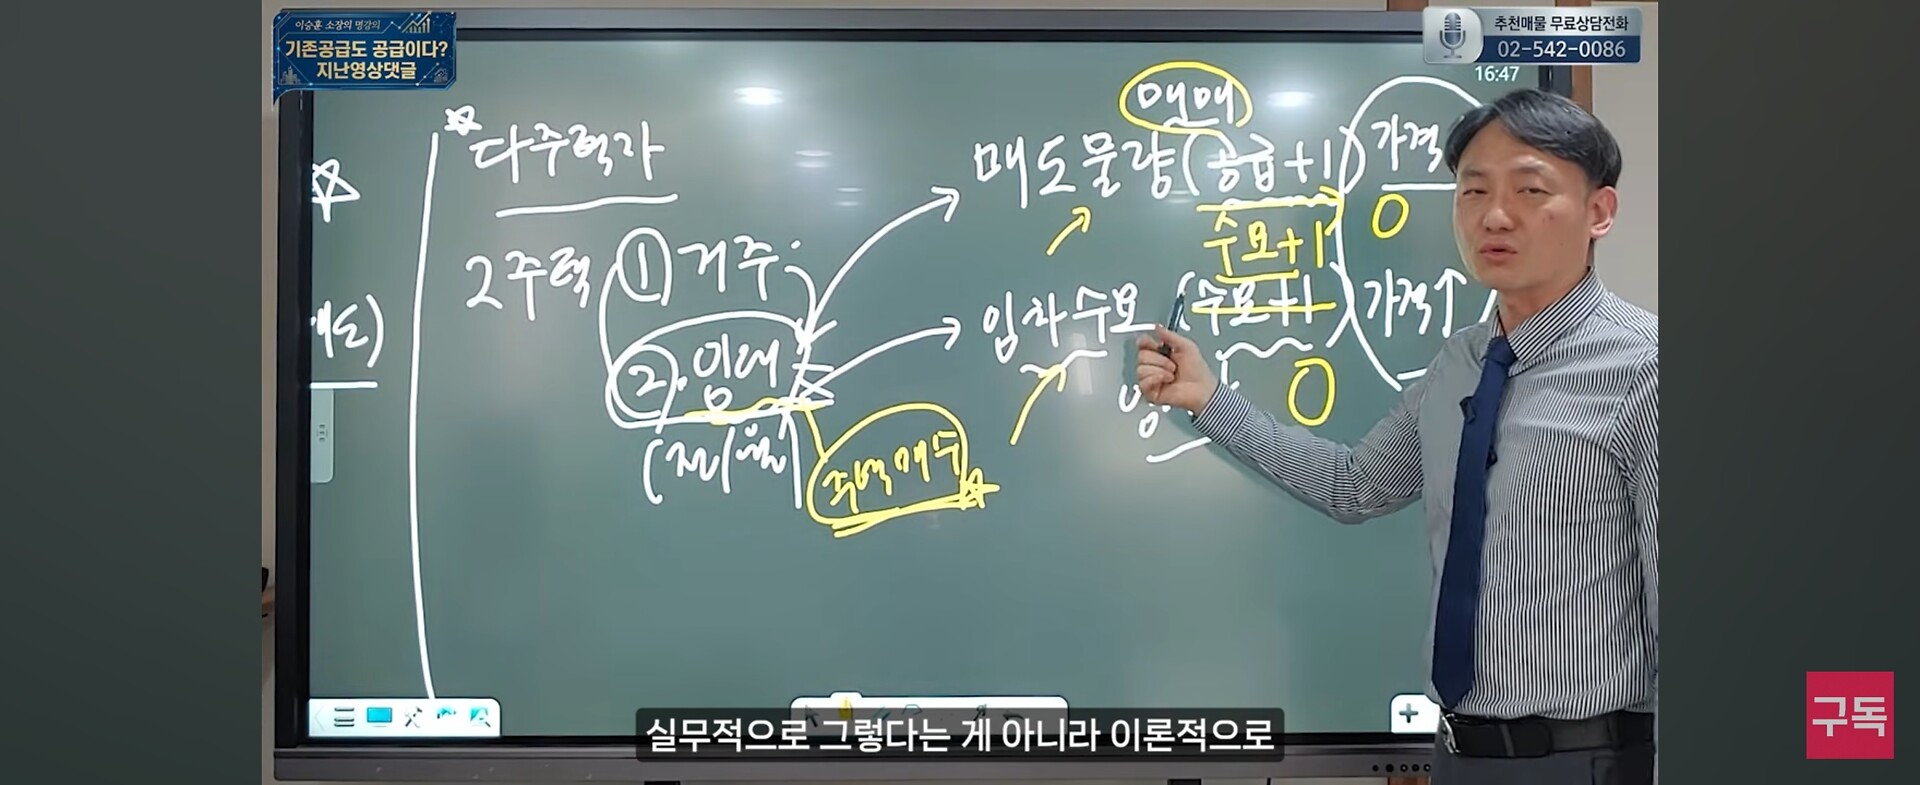 이승훈 소장의 명강의
기존공급도 공급이다?
지난영상댓글
추천매물 무료상담전화
02-542-0086
16:47
다주택자
2주택 ① 거주
② 임대
(전/월)
주택매수
매매
매도물량 (공급+1) 가격
수요+1 0
임차수요 (수요+1) 가격↑
0
실무적으로 그렇다는 게 아니라 이론적으로
구독